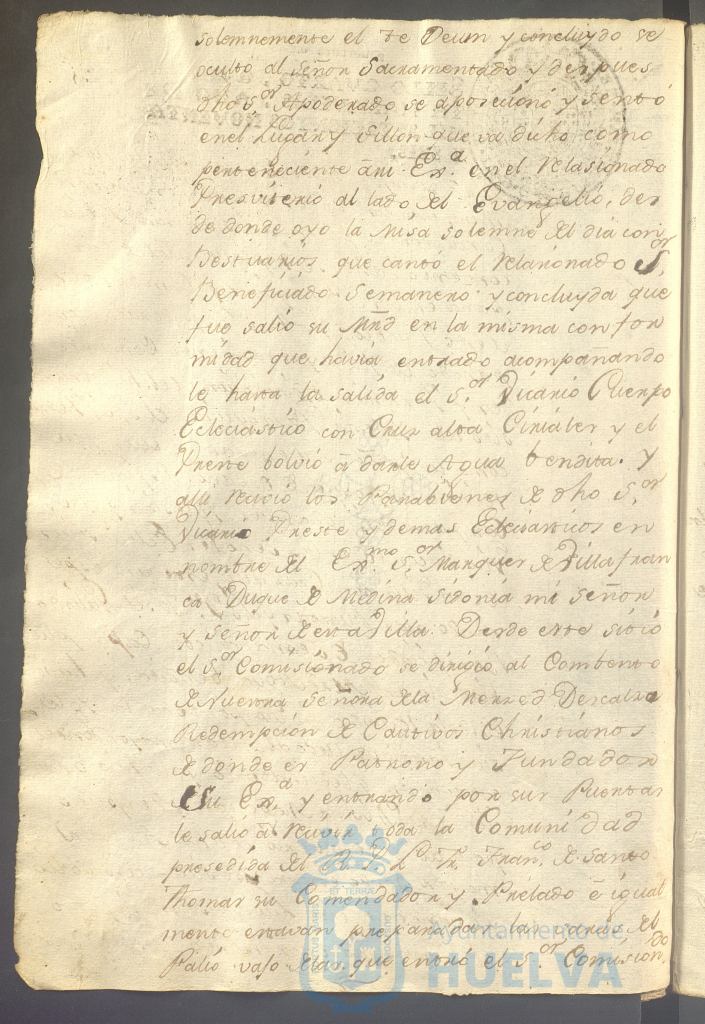 solemnemente el te Deum y concluydo se
ocultó al Señor Sacramentado y despues
dho S.or Apoderado se aposecionó y sentó
en el Lugar y Sillon que va dicho como
perteneciente á mi Ex.a en el relasionado
Presviterio al lado del Evangelio, des
de donde oyo la Misa solemne del dia con
Bestuarios que cantó el relacionado S.or
Beneficiado Semanero y concluyda que
fue salio su Mrd en la misma confor
midad que havia entrado acompañando
le hasta la salida el S.or Vicario Cuerpo
Eclesiástico con Cruz alta Ciriales y el
Preste bolvió á darle Agua bendita. y
alli reciviò los Parabienes de dho S.or
Vicario Preste y demas Eclesiasticos en
nombre del Ex.mo S.or Marques de Villafran
ca Duque de Medina Sidonia mi Señor
y Señor de esta Villa. Desde este sitio
el S.or Comisionado se dirigió al Combento
de Nuestra Señora de la Merzed Descalsa
Redempcion de Cautivos Christianos
de donde es Patrono y Fundador
Su Ex.a y entrando por sus Puertas
le salió á recivir toda la Comunidad
presedida del R. P. Fr. Fran.co de Santo
Thomas su Comendador y Prelado é igual
mente estavan preparadas las varas del
Palio vajo de las que entró el S.or Comision.do
Ayuntamiento de
HUELVA